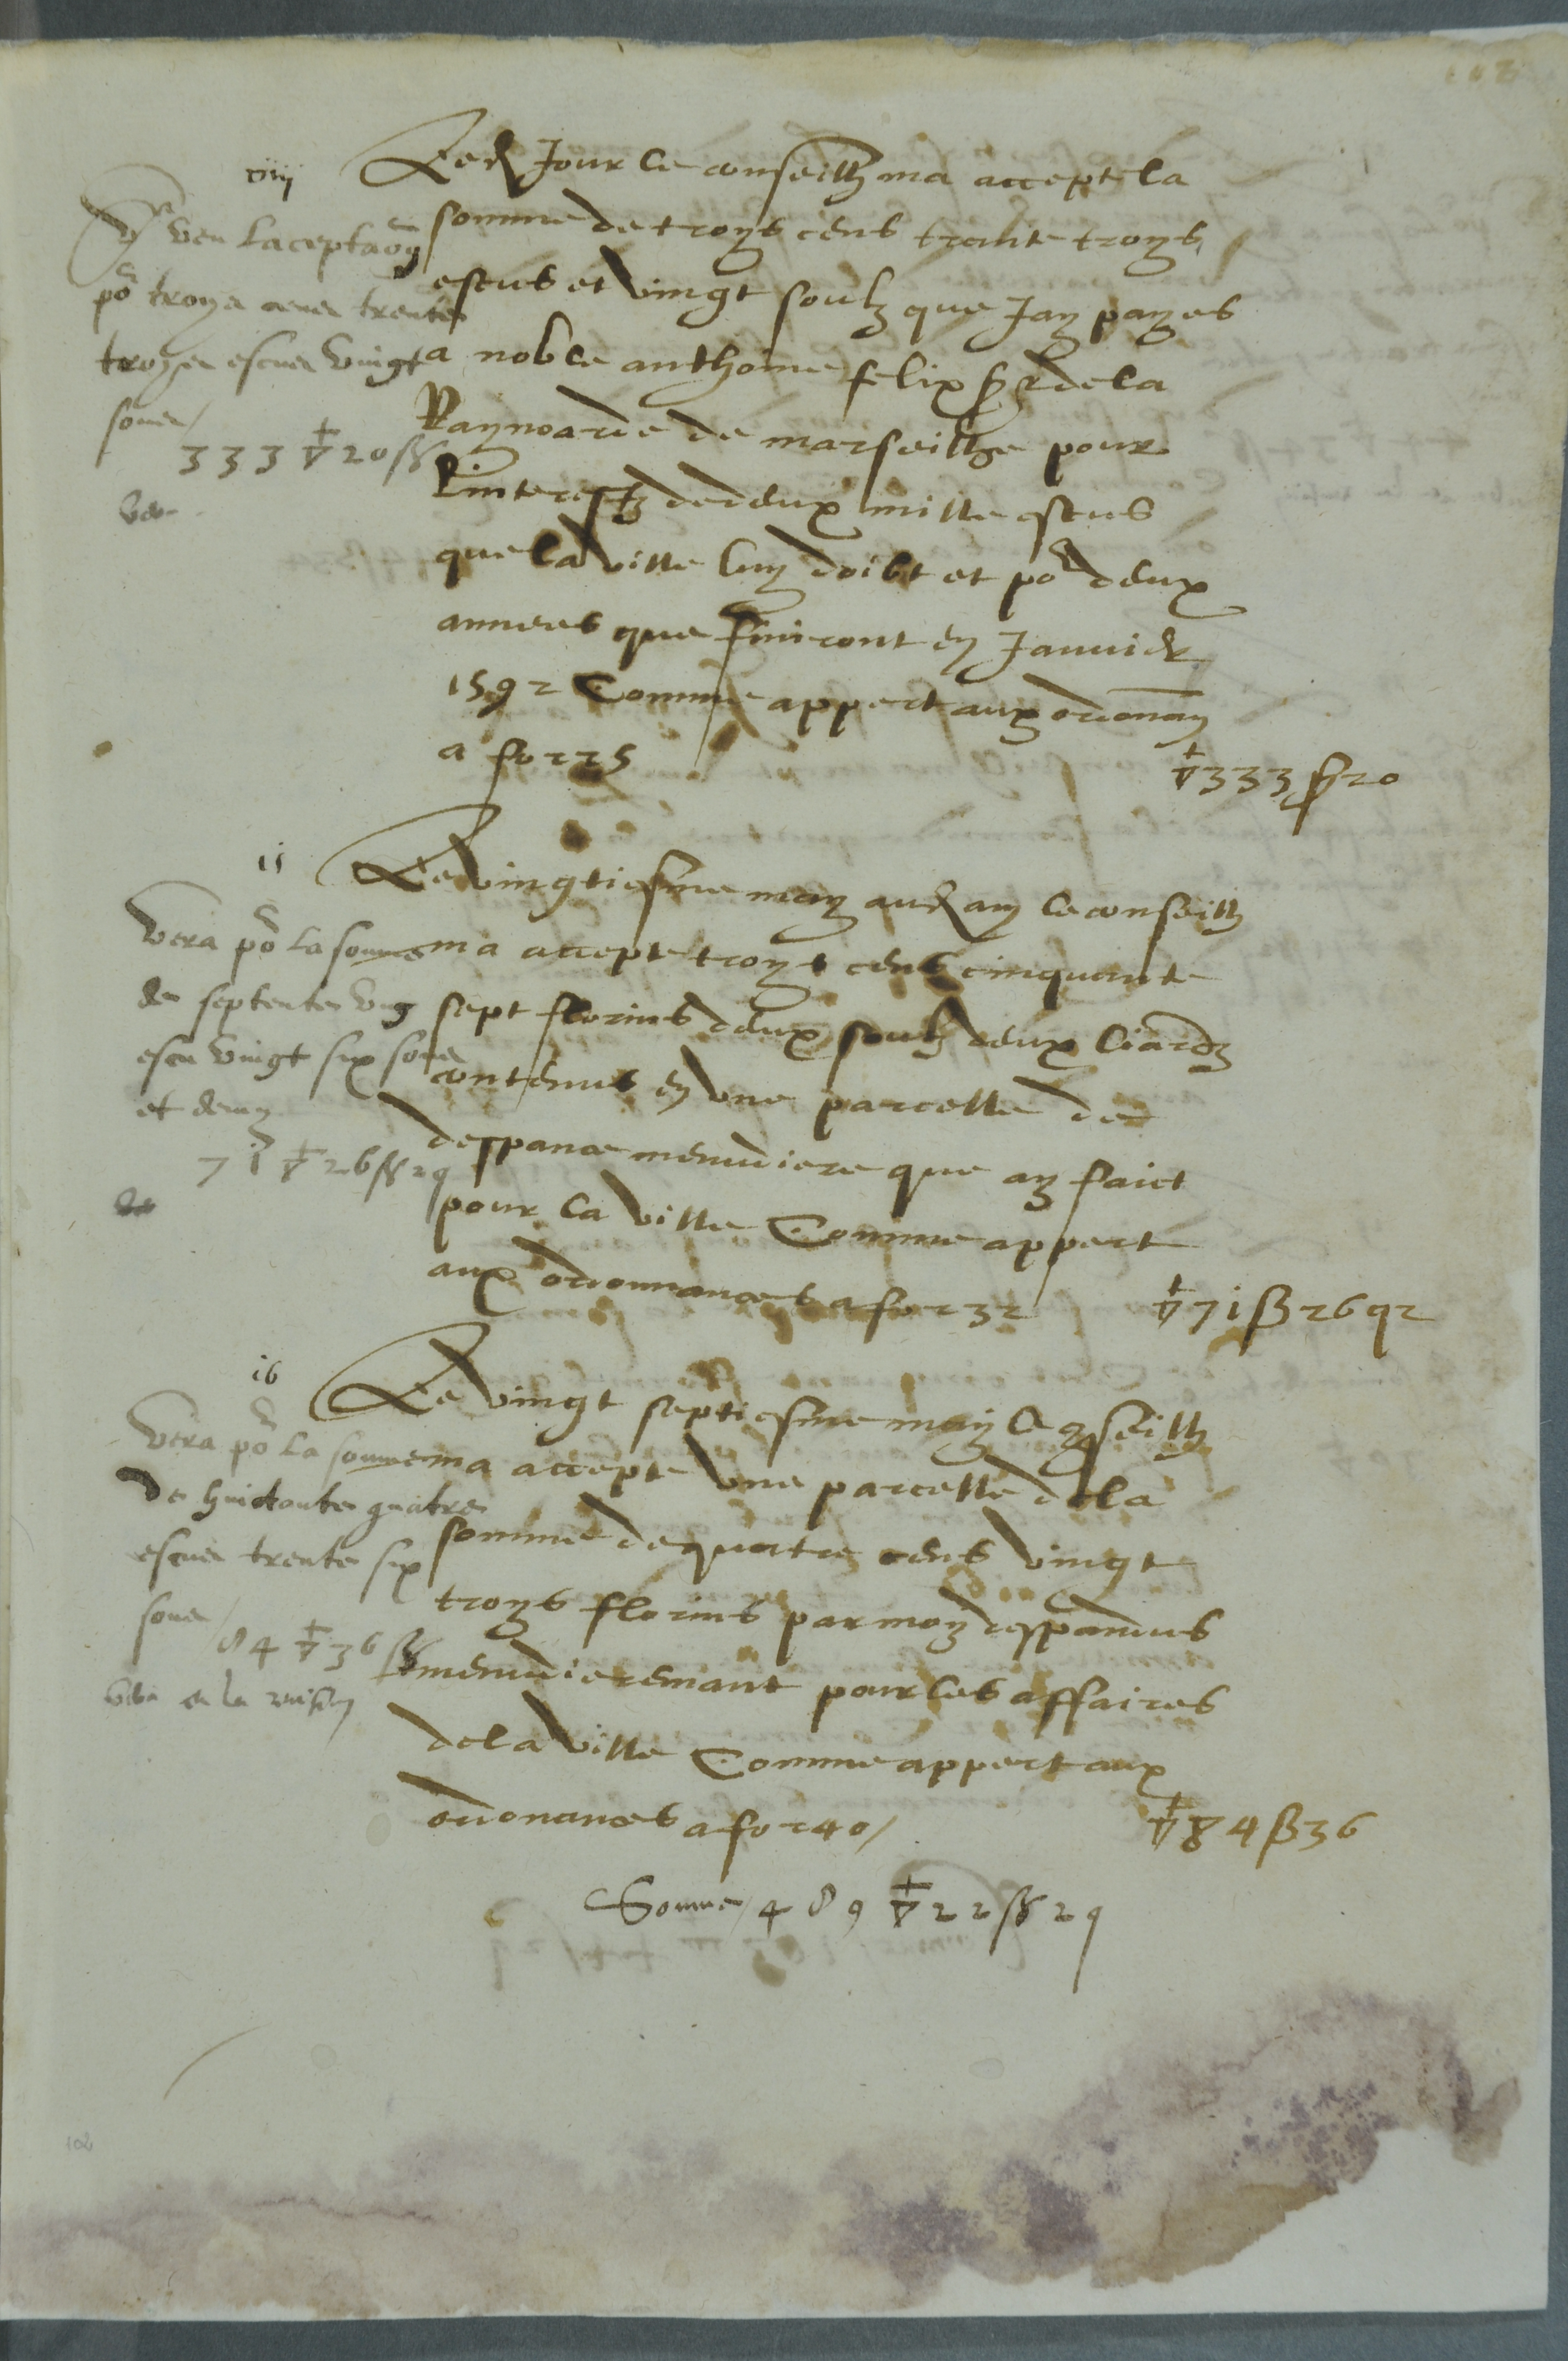 102
xiiii
Led Jour le conseilh ma accepte la
somme de troys cens trante troys
escus et vingt soulz que Jay payes
a noble anthoine felix sr de la
Raynoarde de marseilhe pour
Linterestz de deux mille escus
que la ville luy doibt et por deux
annees que finiront en Janvier
1592 Comme appert aux ordonnan
a fo 225
veu lacceptaon
por troys cens trente
troys escus vingt
sous/
333 ▽ 20 ß
▽ 333 ß 20
15
Le vingtiesme may aud an le conseilh
ma accepte troys cens cinquante
sept florins deux soulz deux liardz
contenus en une parcelle de
despance menudiere que ay faict
pour la ville Comme appert
aux ordonnances a fo 232
▽ 71 ß 26 q 2
Vera por la somme
de septente ung
escu vingt six sous
et demy
71 ▽ 26 ß 2 q
16
Le vingt septiesme may le conseilh
ma accepte une parcelle de la
somme de quatre cens vingt
troys florins par moy despandus
menudieremant pour les affaires
de la ville Comme appert aux
ordonances a fo 240/
▽ 84 ß 36
Vera por la somme
de huictante quatre
escus trente six
sous/
84 ▽ 36 ß
Somme/ 489 ▽ 22 ß 2 q
102